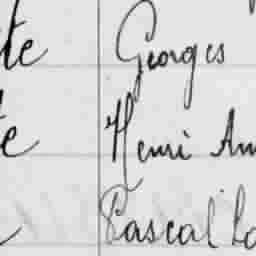 te Georges
te Henri Am
Pascal Lo